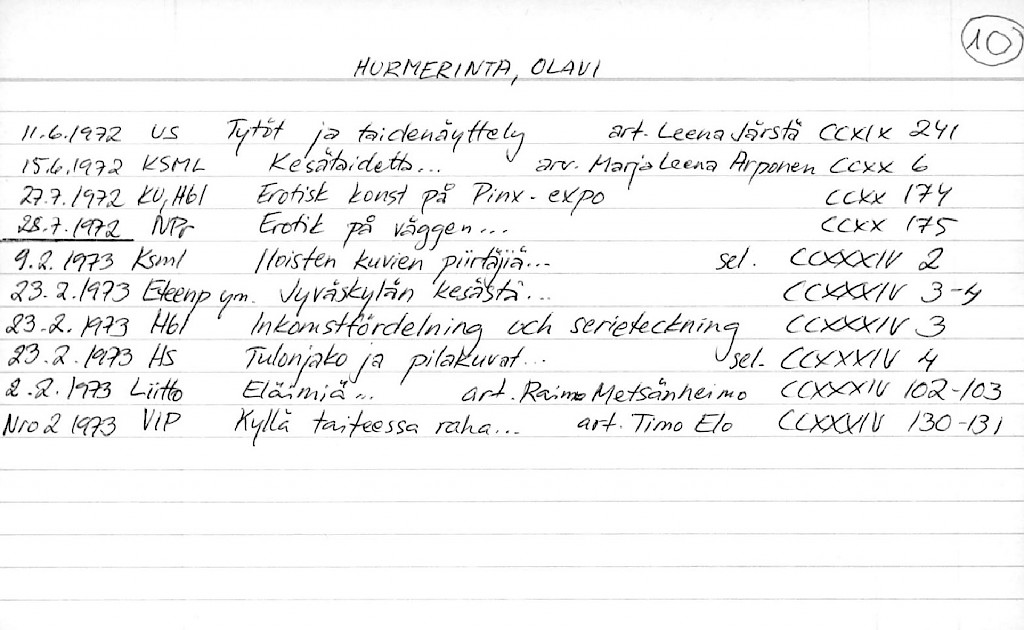 10
HURMERINTA, OLAVI
11.6.1972 US Tytöt ja taidenäyttely art. Leena Järstä CCXIX 241
15.6.1972 KSML Kesätaidetta... arv. Marjaleena Arponen CCXX 6
27.7.1972 KU, Hbl Erotisk konst på Pinx-expo CCXX 174
28.7.1972 NPr Erotik på väggen... CCXX 175
9.2.1973 Ksml Iloisten kuvien piirtäjiä... sel. CCXXXIV 2
23.2.1973 Eteenp ym. Jyväskylän kesästä... CCXXXIV 3-4
23.2.1973 Hbl Inkomstfördelning och serieteckning CCXXXIV 3
23.2.1973 HS Tulonjako ja pilakuvat... sel. CCXXXIV 4
2.2.1973 Liitto Eläimiä... art. Raimo Metsänheimo CCXXXIV 102-103
Nro 2 1973 ViP Kyllä taiteessa raha... art. Timo Elo CCXXXIV 130-131